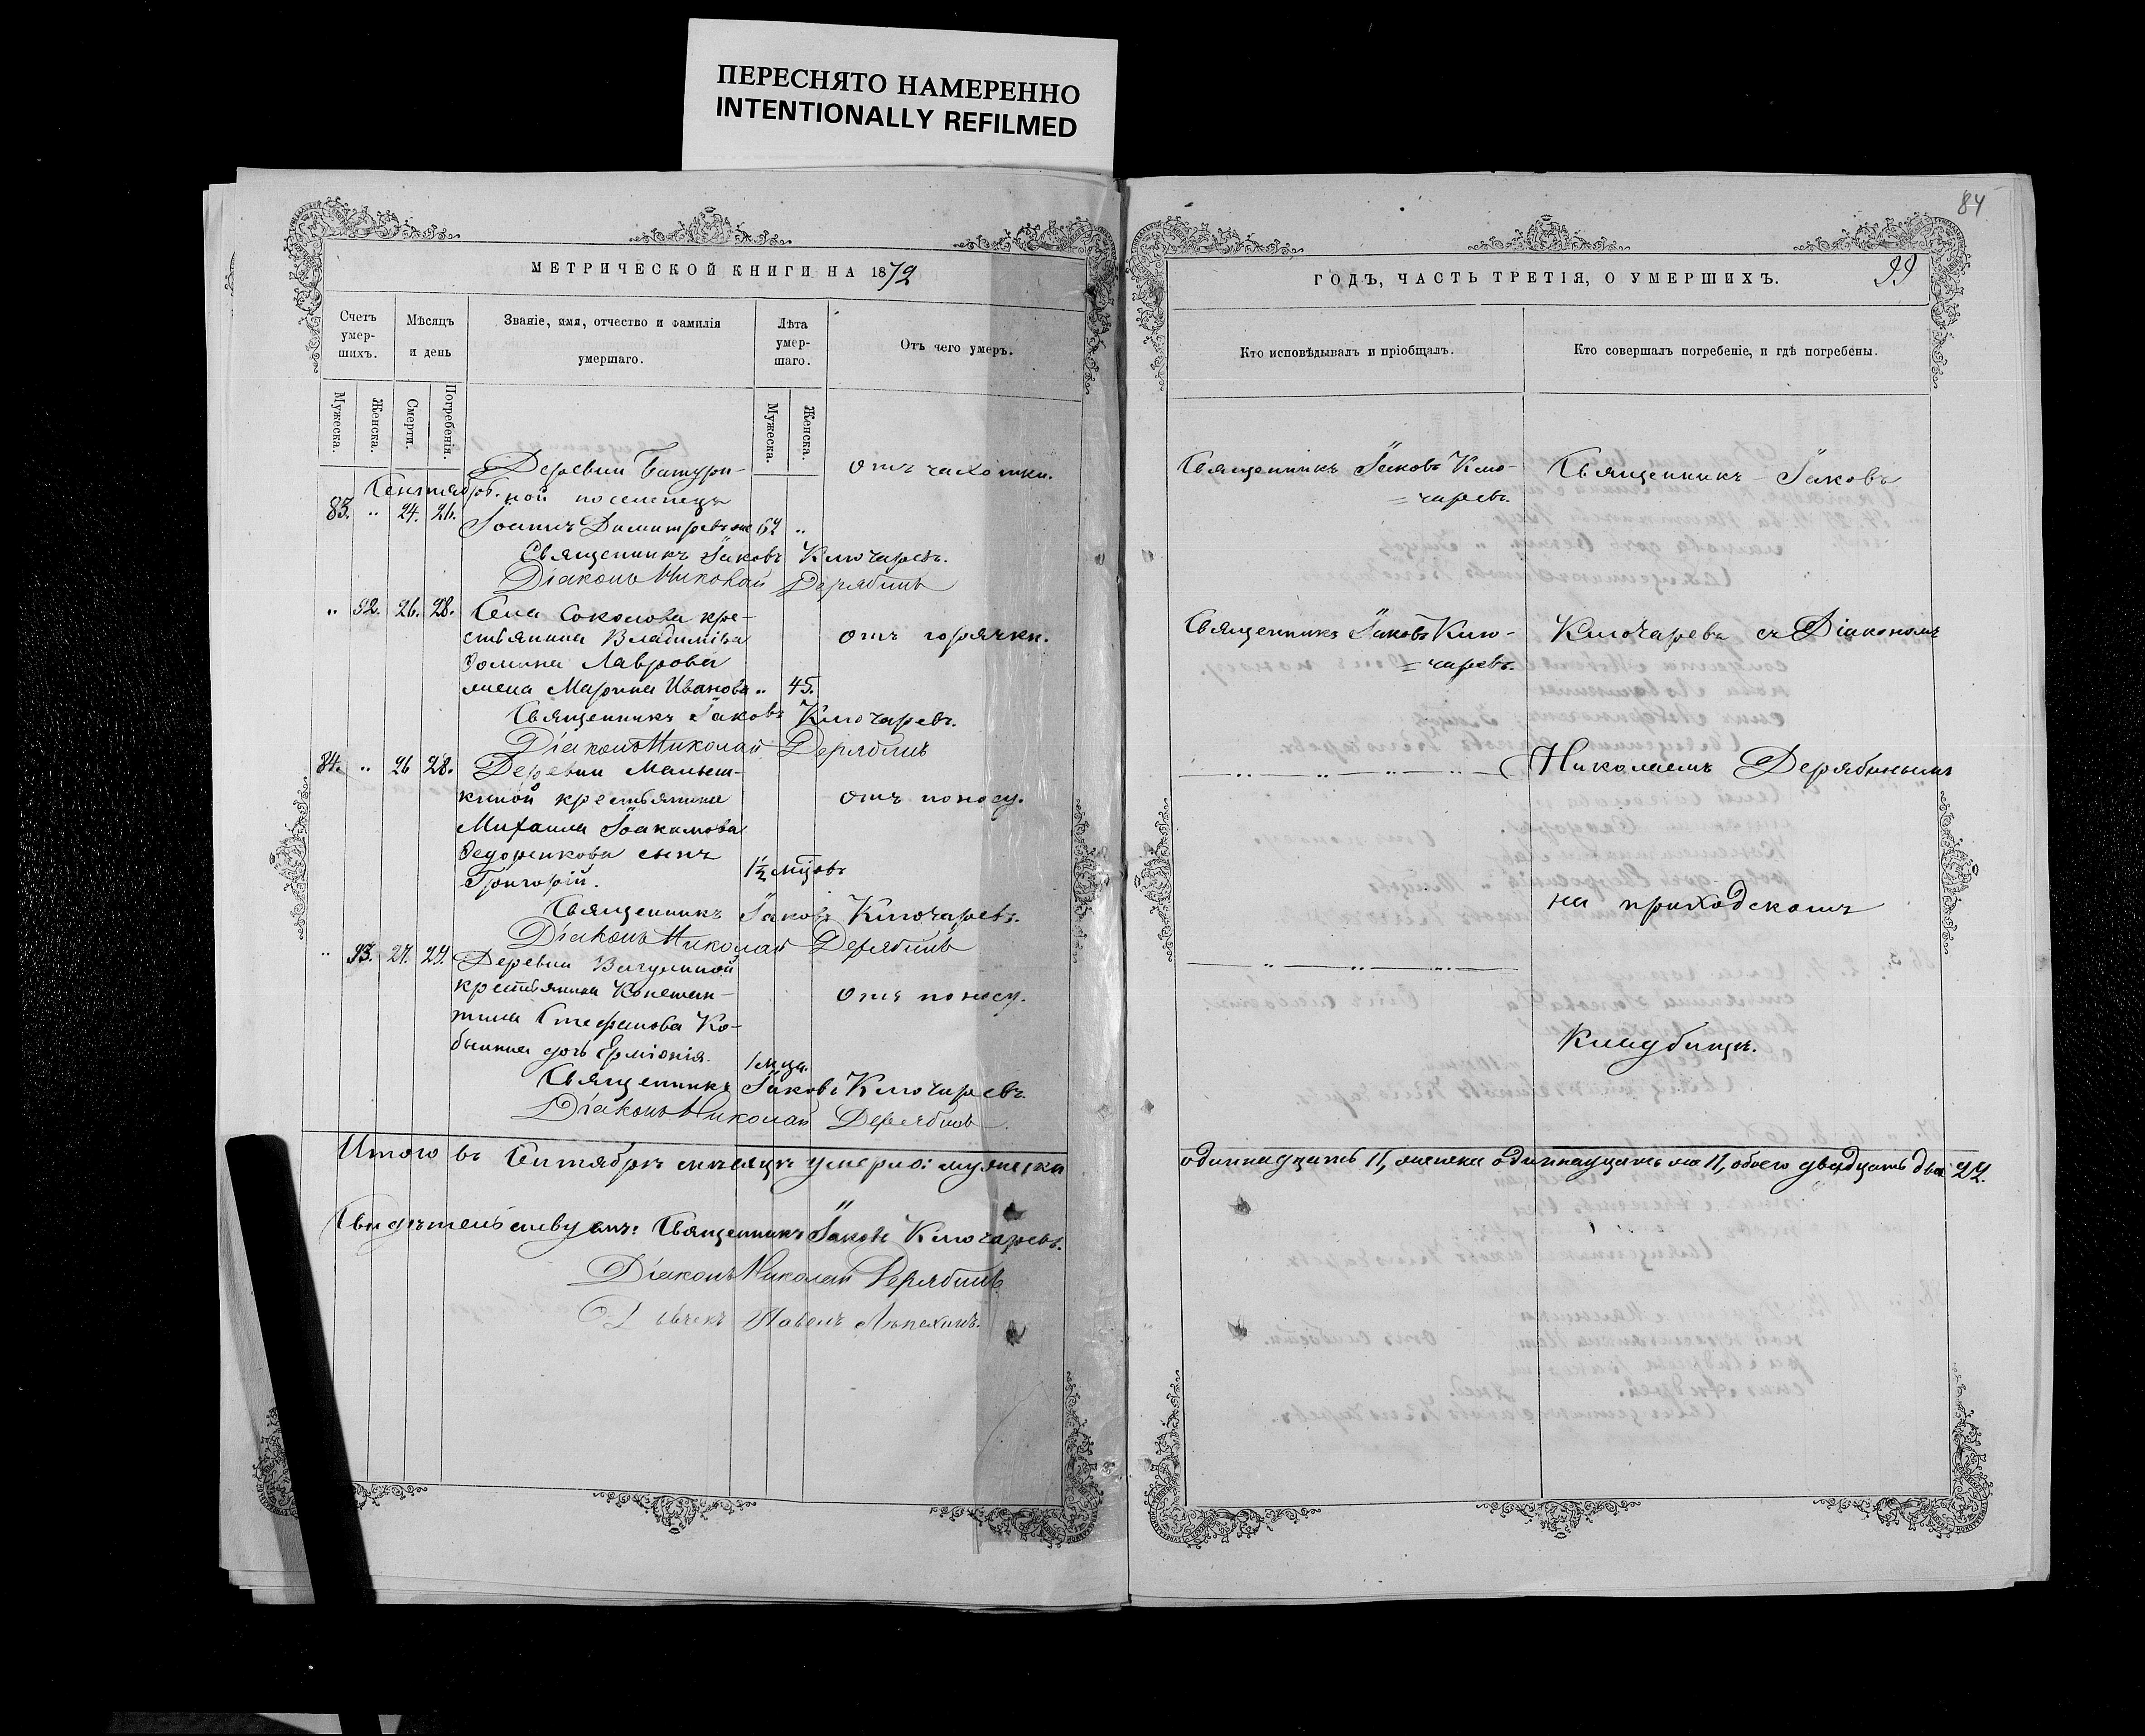 ПЕРЕСНЯТО НАМЕРЕННО
INTENTIONALLY REFILMED
МЕТРИЧЕСКОЙ КНИГИ НА 1872
Счетъ умер-шихъ.
Мѣсяцъ и день
Званіе, имя, отчество и фамилія умершаго.
Лѣта умер-шаго.
Отъ чего умеръ.
Мужеска.
Женска.
Смерти.
Погребенія.
Мужеска.
Женска.
Сентябрь.
Деревни Батури-
отъ чахотки.
83. " 24. 26. ной поселенецъ
Іоаннъ Димитріевъ 62 "
Священникъ Іаковъ Ключаревъ.
Діаконъ Николай Дерябинъ
" 92. 26. 28. Села Соколова кре-
стьянина Владиміра
отъ горячки.
Ѳомина Лаврова
жена Марина Иванова " 45.
Священникъ Іаковъ Ключаревъ.
Діаконъ Николай Дерябинъ
84. " 26 28. Деревни Малыш-
киной крестьянина
отъ поносу.
Михаила Іоакимова
Ѳедоренкова сынъ
Григорій.
1½ мцовъ
Священникъ Іаковъ Ключаревъ.
Діаконъ Николай Дерябинъ
" 93. 27. 29. Деревни
крестьянина Констан-
отъ поносу.
тина Стефанова Ко-
дочь Ерміонія.
1 мца.
Священникъ Іаковъ Ключаревъ.
Діаконъ Николай Дерябинъ
Итого въ Сентябрѣ мѣсяцѣ умерло: мужеска
Свидѣтельствуютъ: Священникъ Іаковъ Ключаревъ.
Діаконъ Николай Дерябинъ
Дьячекъ Павелъ Лепехинъ.
84
ГОДЪ, ЧАСТЬ ТРЕТІЯ, О УМЕРШИХЪ.
99
Кто исповѣдывалъ и пріобщалъ.
Кто совершалъ погребеніе, и гдѣ погребены.
Священникъ Іаковъ Клю-
=чаревъ.
Священникъ Іаковъ
Священникъ Іаковъ Клю-
=чаревъ.
Ключаревъ съ Діакономъ
Николаемъ Дерябинымъ
на приходскомъ
Кладбищѣ.
одиннадцать 11, женска одиннадцать же 11, обоего двадцать два 22.